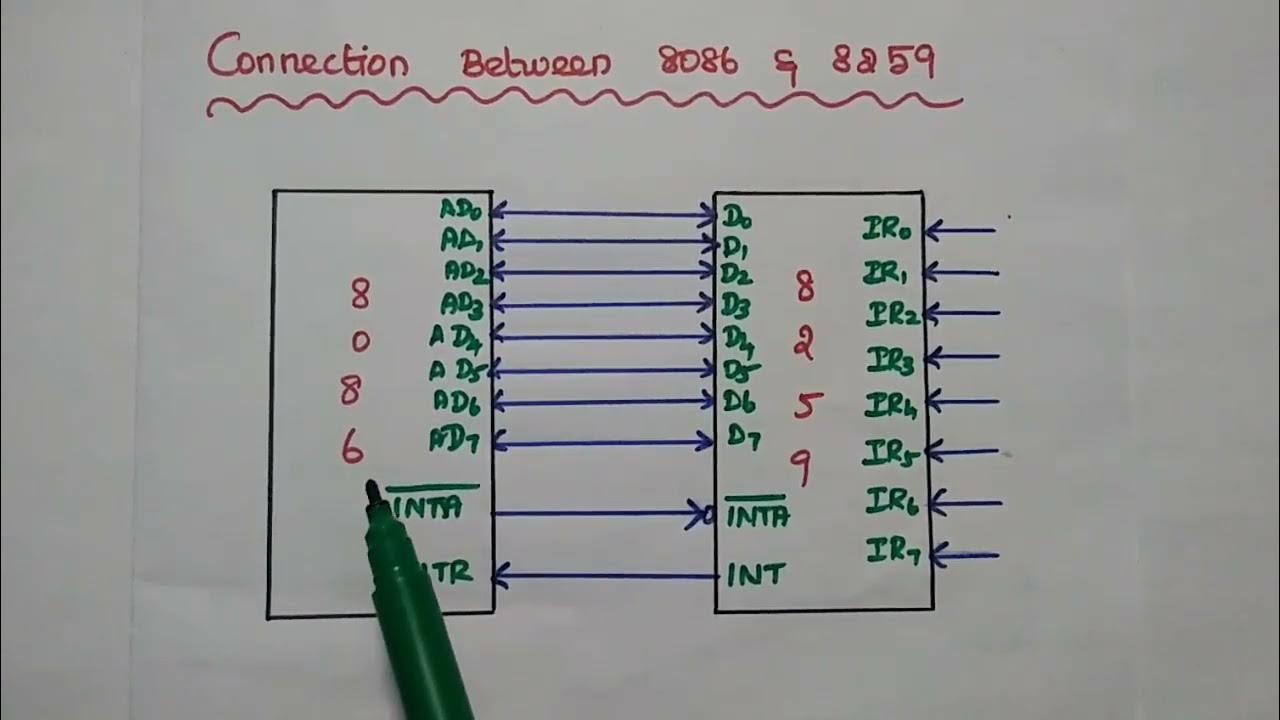 Connection Between 8086 & 8259
AD0
AD1
AD2
AD3
AD4
AD5
AD6
AD7
8
0
8
6
INTA
D0
D1
D2
D3
D4
D5
D6
D7
INTA
INT
8
2
5
9
IR0
IR1
IR2
IR3
IR4
IR5
IR6
IR7